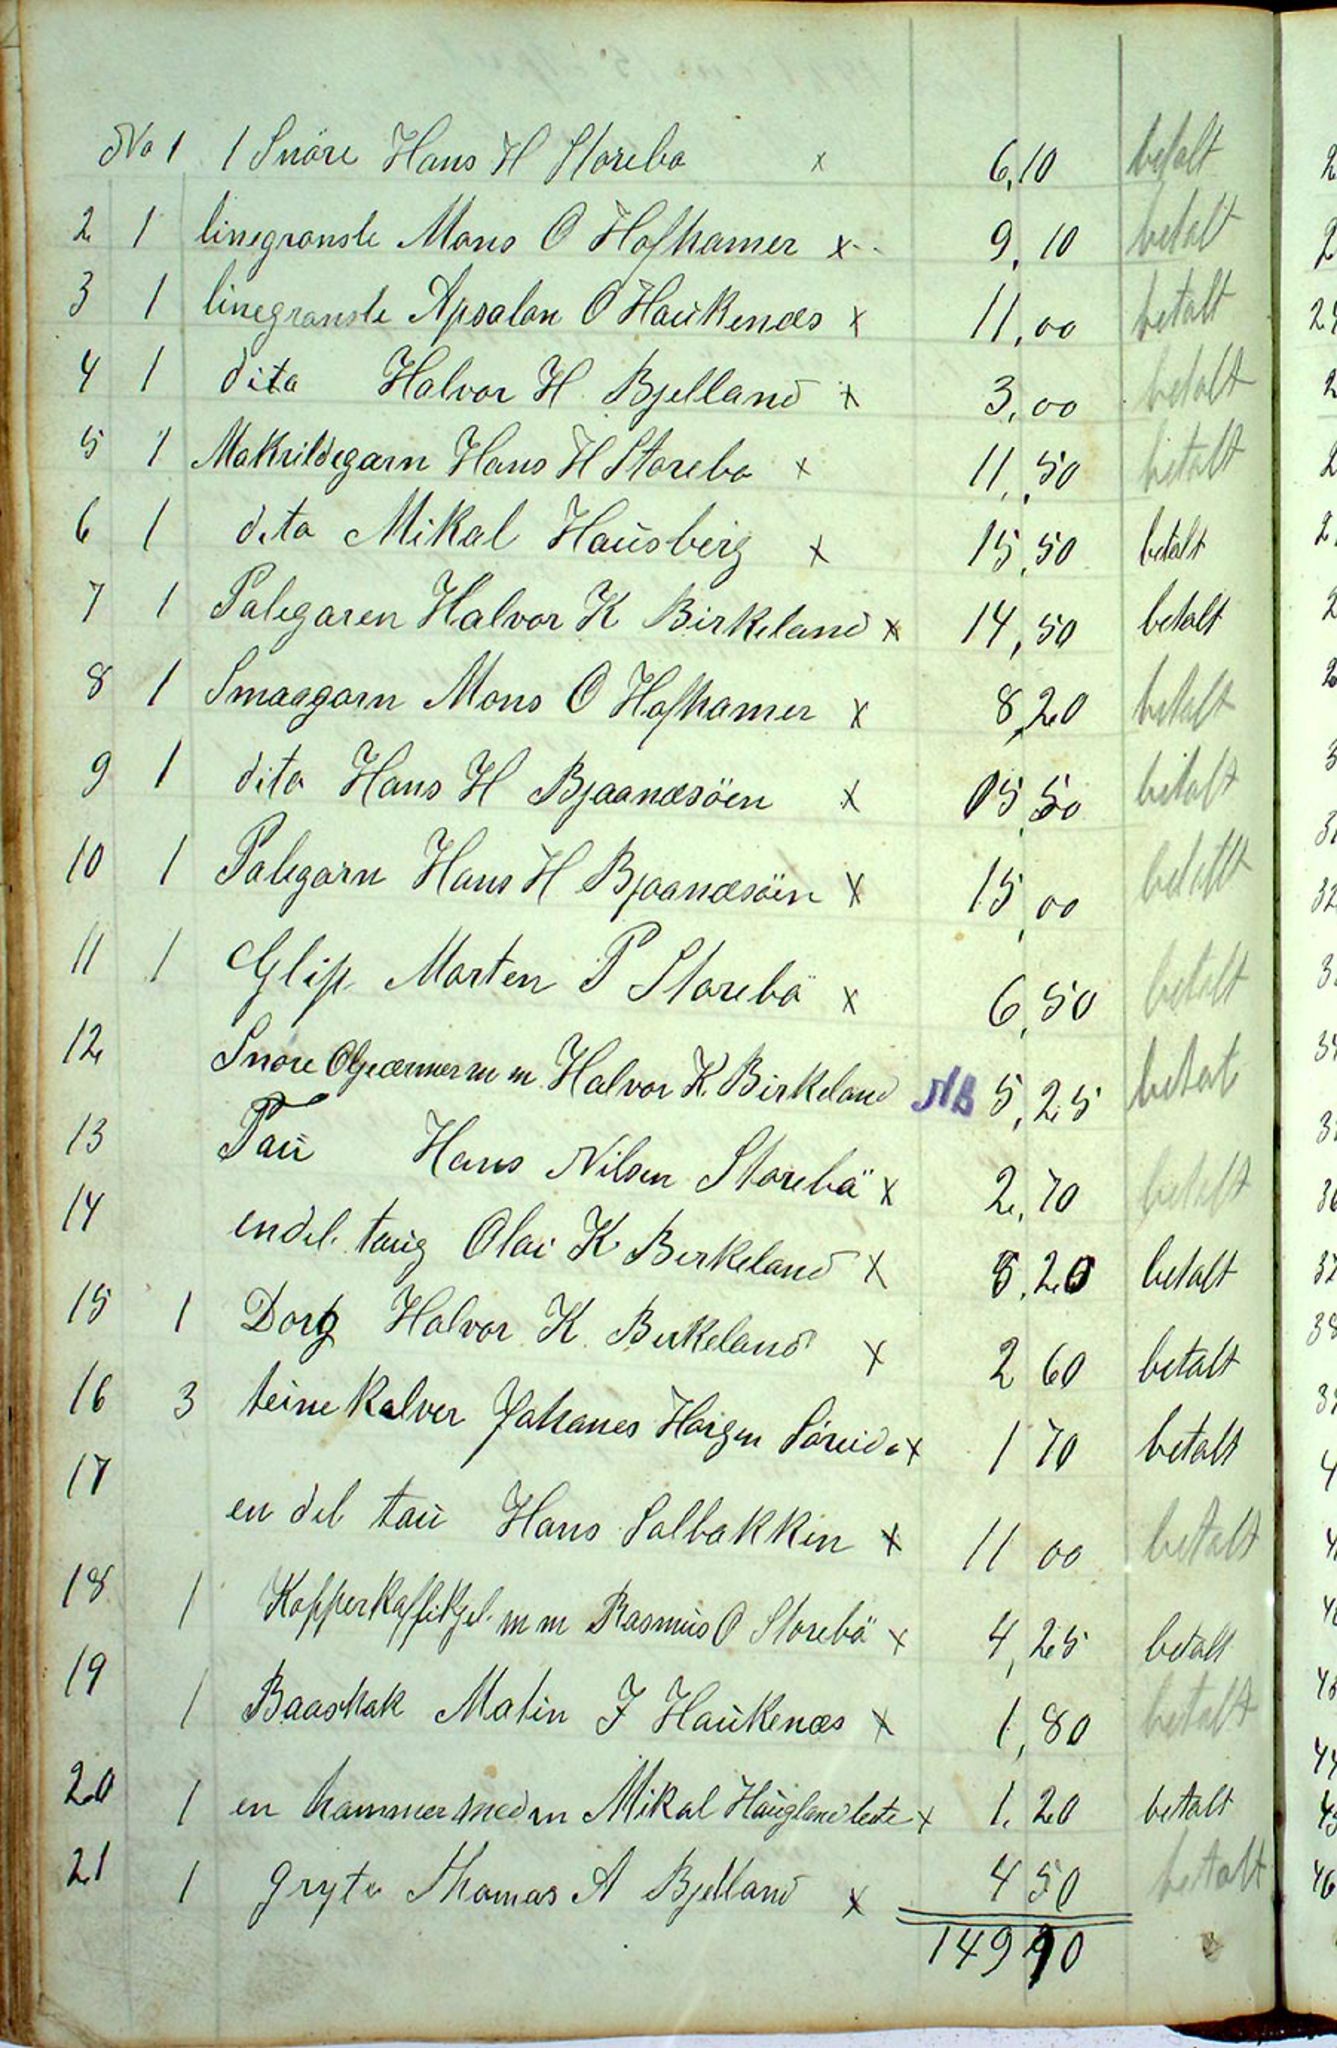 No 1 1 Snöre Hans H Storebø x 6,10 betalt
2 1 linegransle Mons O Hofhamer x 9,10 betalt
3 1 linegransle Apsalon O Haukenæs x 11,00 betalt
4 1 dita Halvor H Bjelland x 3,00 betalt
5 1 Makrildegarn Hans H Storebo x 11,50 betalt
6 1 dito Mikal Hausberg x 15,50 betalt
7 1 Palegaren Halvor K Birkeland x 14,50 betalt
8 1 Smaagarn Mons O Hofhamer x 8,20 betalt
9 1 dito Hans H Bjaanæsöen x 15,50 betalt
10 1 Palegarn Hans H Bjaanæsöen x 15,00 betalt
11 1 Glip Morten P Storebö x 6,50 betalt
12 Snöre m m Halvor K. Birkeland NB 5,25 betalt
13 Tau Hans Nilsen Storebö x 2,70 betalt
14 endel taug Olai K Berkeland x 5,20 betalt
15 1 Dorg Halvor K. Birkeland x 2 60 betalt
16 3 teine kalver Johanes Söreide x 1 70 betalt
17 en del tau Hans Solbakken x 11 00 betalt
18 1 Kopperkaffikjel m m Rasmus O Storebö x 4,25 betalt
19 1 Baashak Malin J Haukenæs x 1,80 betalt
20 1 en hammer med m Mikal x 1,20 betalt
21 1 gryte Thomas A Bjelland x 4 50 betalt
149 90